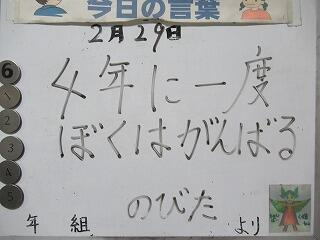 今日の言葉
2月29日
4年に一度
ぼくはがんばる
のびた
年 組 より
6
1
2
3
4
5